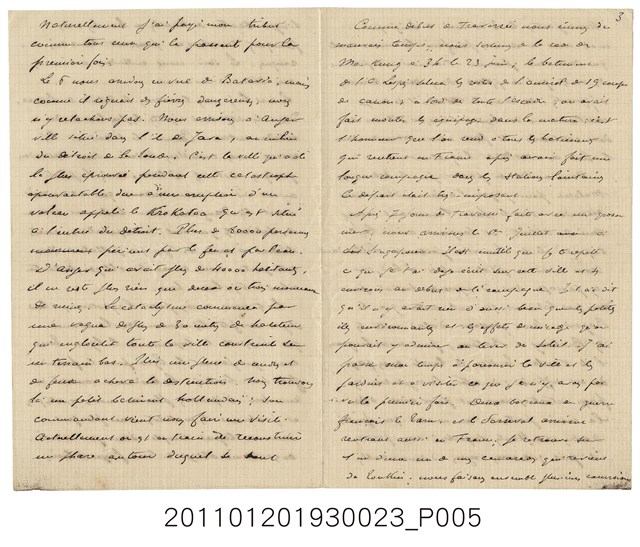 Naturellement j'ai payé mon tribut
comme tous ceux qui le passent pour la
première fois.
Le 8 nous arrivons en vue de Batavia, mais
comme il régnait des fièvres dangereuses, nous
n'y relachons pas. Nous arrivons à Anger
ville située dans l'île de Java, au milieu
du détroit de la Sonde. C'est la ville qui a été
la plus éprouvée pendant cette catastrophe
épouvantable due à une éruption d'un
volcan appelé le Krakatoa qui est situé
à l'entrée du détroit. Plus de 60000 personnes
périrent par le feu et par l'eau.
D'Anger qui avait plus de 40000 habitants,
il ne reste plus rien que deux ou trois monceaux
de ruines. Le cataclysme commença par
une vague de plus de 30 mètres de hauteur
qui engloutit toute la ville construite sur
un terrain bas. Puis une pluie de cendres et
de feu acheva la destruction. Nous trouvons
là un petit bâtiment hollandais; son
commandant vient nous faire une visite.
Actuellement on est en train de reconstruire
un phare autour duquel se sont
3
Comme début de traversée nous eûmes du
mauvais temps. nous sortons de la rade de
Ma Kung à 3h le 23 juin; le
salua les de l'amiral de 19 coups
de canon; à bord de toute l'escadre on avait
fait monter les équipages dans la mature: c'est
l'honneur que l'on rend à tous les bâtiments
qui rentrent en France après avoir fait une
longue campagne dans les stations lointaines
Le départ était très imposant
Après 7 jours de traversée faite avec une grosse
mer, nous arrivons le 1er Juillet
Singapoore. Il est inutile que je te répète
ce que je t'ai déjà écrit sur cette ville et ses
environs au début de la campagne. Je t'ai dit
qu'il n'y avait rien d'aussi beau que les petites
îles environnantes et les effets de mirage qu'on
pouvait y admirer au lever du soleil. J'ai
passé mon temps à parcourir la ville et les
jardins et à visiter ce que je n'y avais pas
vu la première fois. Deux bateaux de guerre
français le Tarn et le
rentrant aussi en France. Je retrouve sur
l'un d'eux un de mes camarades qui revient
du Tonkin; nous faisons ensemble plusieurs excursions
201101201930023_P005